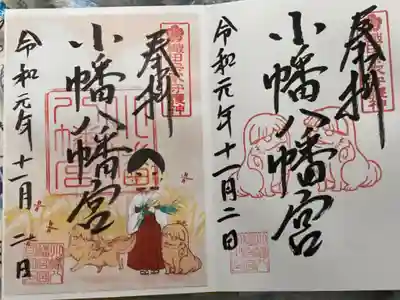 奉拝
小幡八幡宮
令和元年十一月二日
奉拝
小幡八幡宮
令和元年十一月二日